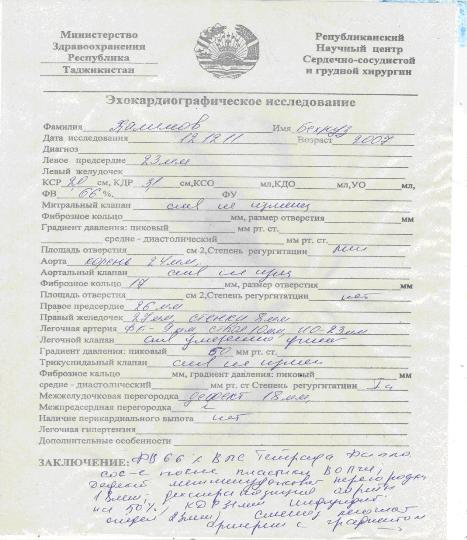 Министерство
Здравоохранения
Республика
Таджикистан
Републиканский
Научный центр
Сердечно-сосудистой
и грудной хирургии
Эхокардиографическое исследование
Фамилия Халимов Имя Бехруз
Дата исследования 12 12 11 Возраст 2007
Диагноз
Левое предсердие 23мм
Левый желудочек
КСР 20 см, КДР 31 см,КСО мл,КДО мл,УО мл,
ФВ 66 %, ФУ
Митральный клапан не
Фиброзное кольцо мм, размер отверстия мм
Градиент давления: пиковый мм рт. ст.
средне - диастолический мм рт. ст.
Площадь отверстия см 2,Степень регургитации
Аорта корень 24мм
Аортальный клапан не
Фиброзное кольцо 17 мм, размер отверстия мм
Площадь отверстия см 2,Степень регургитации нет
Правое предсердие 26мм
Правый желудочек 27мм, стенки 8мм
Легочная артерия ФК- 9мм ствол 10мм
Легочной клапан умеренно
Градиент давления: пиковый 50 мм рт. ст.
Трикуспидальный клапан не
Фиброзное кольцо мм, градиент давления: пиковый мм
средне - диастолический мм рт. ст Степень регургитации
Межжелудочковая перегородка дефект 18мм
Межпредсердная перегородка
Наличие перикардиального выпота нет
Легочная гипертензия
Дополнительные особенности
ЗАКЛЮЧЕНИЕ: ФВ 66% ВПС Тетрада Фалло
сос-е после пластики ВОПЖ,
Дефект межжелудочков перегородки
18мм, декстрапозиция аорты
на 50%, КДР 31мм
23мм, легочной
артерии с градиентом